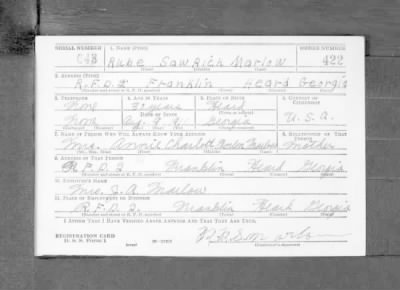 SERIAL NUMBER 1. NAME (Print) ORDER NUMBER
Rube Sawrich Marlow 422
(First) (Middle) (Last)
2. ADDRESS (Print)
R.F.D. 2 Franklin Heard Georgia
3. TELEPHONE 4. AGE IN YEARS 5. PLACE OF BIRTH 6. COUNTRY OF CITIZENSHIP
None Heard
DATE OF BIRTH
None Georgia U.S.A.
7. NAME OF PERSON WHO WILL ALWAYS KNOW YOUR ADDRESS 8. RELATIONSHIP OF THAT PERSON
Mrs. Annie Mother
9. ADDRESS OF THAT PERSON
R.F.D. 2 Franklin Heard Georgia
10. EMPLOYER'S NAME
Mrs. J. A. Marlow
11. PLACE OF EMPLOYMENT OR BUSINESS
R.F.D. 2. Franklin Heard Georgia
I AFFIRM THAT I HAVE VERIFIED ABOVE ANSWERS AND THAT THEY ARE TRUE.
REGISTRATION CARD
D. S. S. Form 1